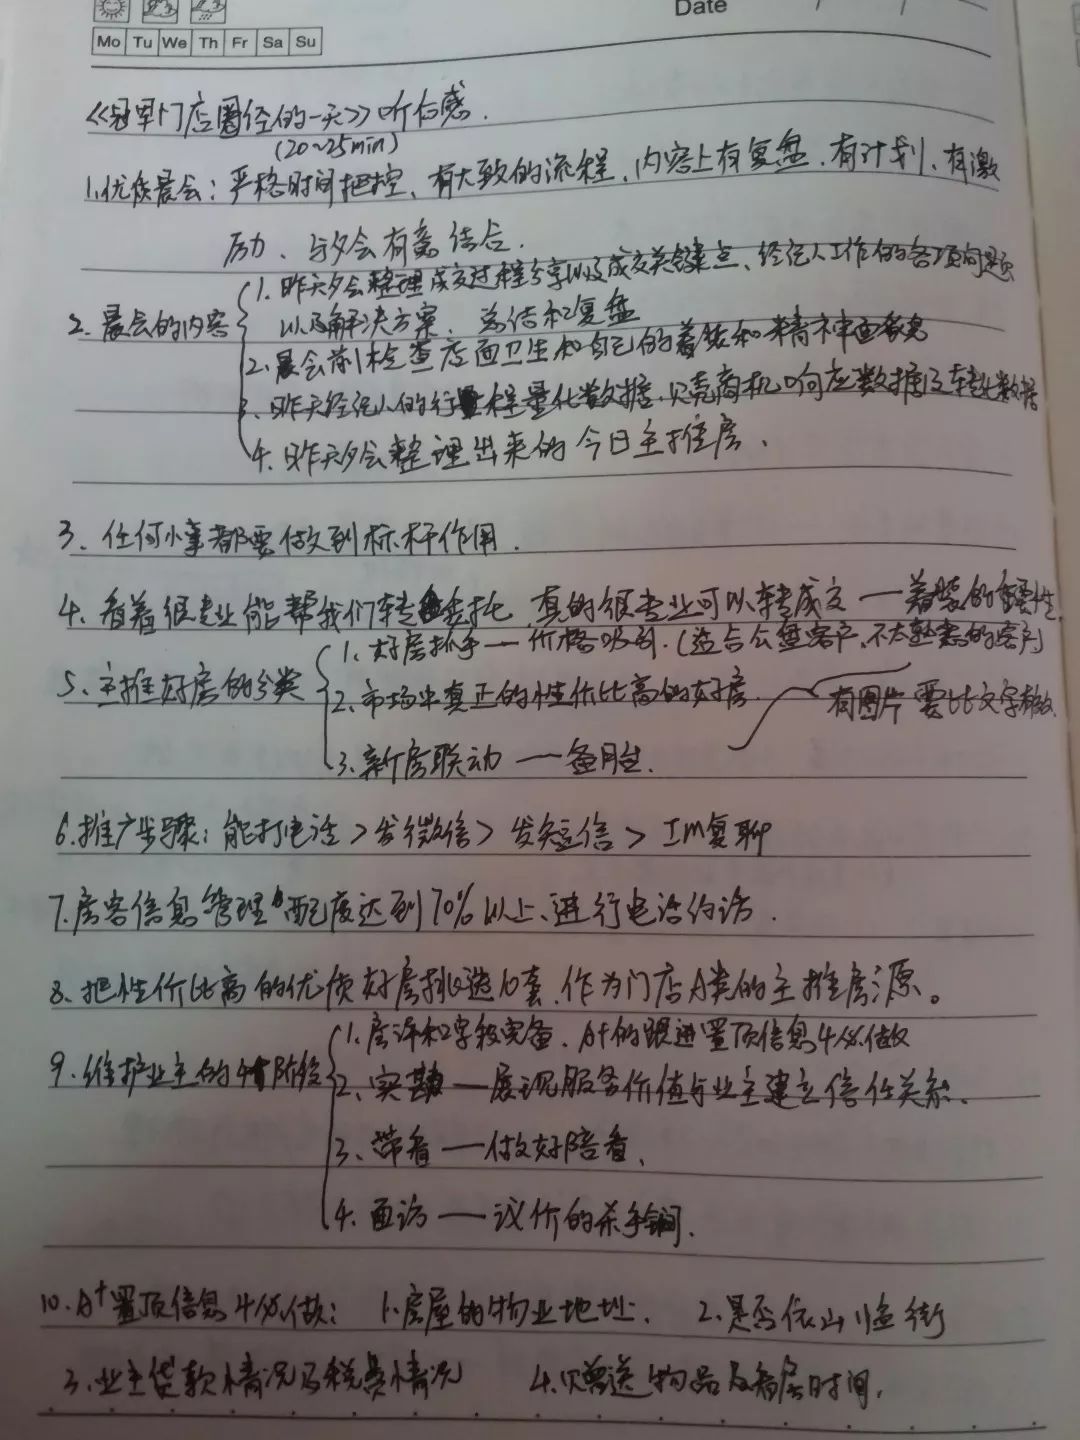 Date
Mo Tu We Th Fr Sa Su
《冠军门店圈经的一天》听后感.
(20~25min)
1.优质晨会：严格时间把控、有大致的流程、内容上有复盘、有计划、有激
励、与夕会有着结合.
2. 晨会的内容
1. 昨天夕会整理成交过程分享以及成交关键点、经纪人工作的各项问题
以及解决方案、总结和复盘
2.晨会前检查店面卫生和自己的着装和精神面貌
3.昨天经纪人的行程量化数据.贝壳商机响应数据及转化数据
4.昨天夕会整理出来的今日主推房、
3、任何小事都要做到标杆作用.
4.看着很专业能帮我们转委托，真的很专业可以转成交 — 着装的重要性.
5、主推好房的分类
1、好房抓手 — 价格吸引.(适合公盘客户、不太熟悉的客户)
2、市场中真正的性价比高的好房.
有图片 要比文字
3、新房联动 — 备胎.
6.推广步骤：能打电话>发微信>发短信>IM复聊
7.房客信息管理 配度达到70%以上、进行电话约访.
8、把性价比高的优质好房挑选10套，作为门店A类的主推房源。
9、维护业主的4阶段
1.房源和字段完备、A+的跟进置顶信息4必做
2、实勘 — 展现服务价值与业主建立信任关系.
3、带看 — 做好陪看、
4.面访 — 议价的杀手锏.
10.A+置顶信息4必做： 1.房屋的物业地址. 2.是否依山临街
3.业主贷款情况及税费情况 4.赠送物品及时间.